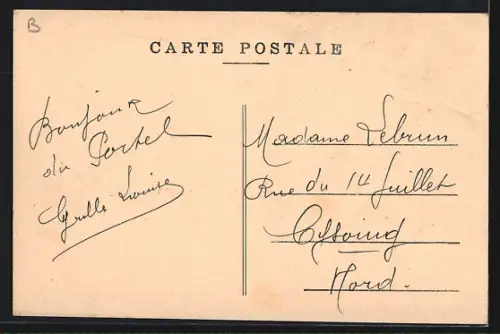 B
CARTE POSTALE
Bonjour
du Portel
Louise
Madame Lebrun
Rue du 14 Juillet
Cysoing
Nord.